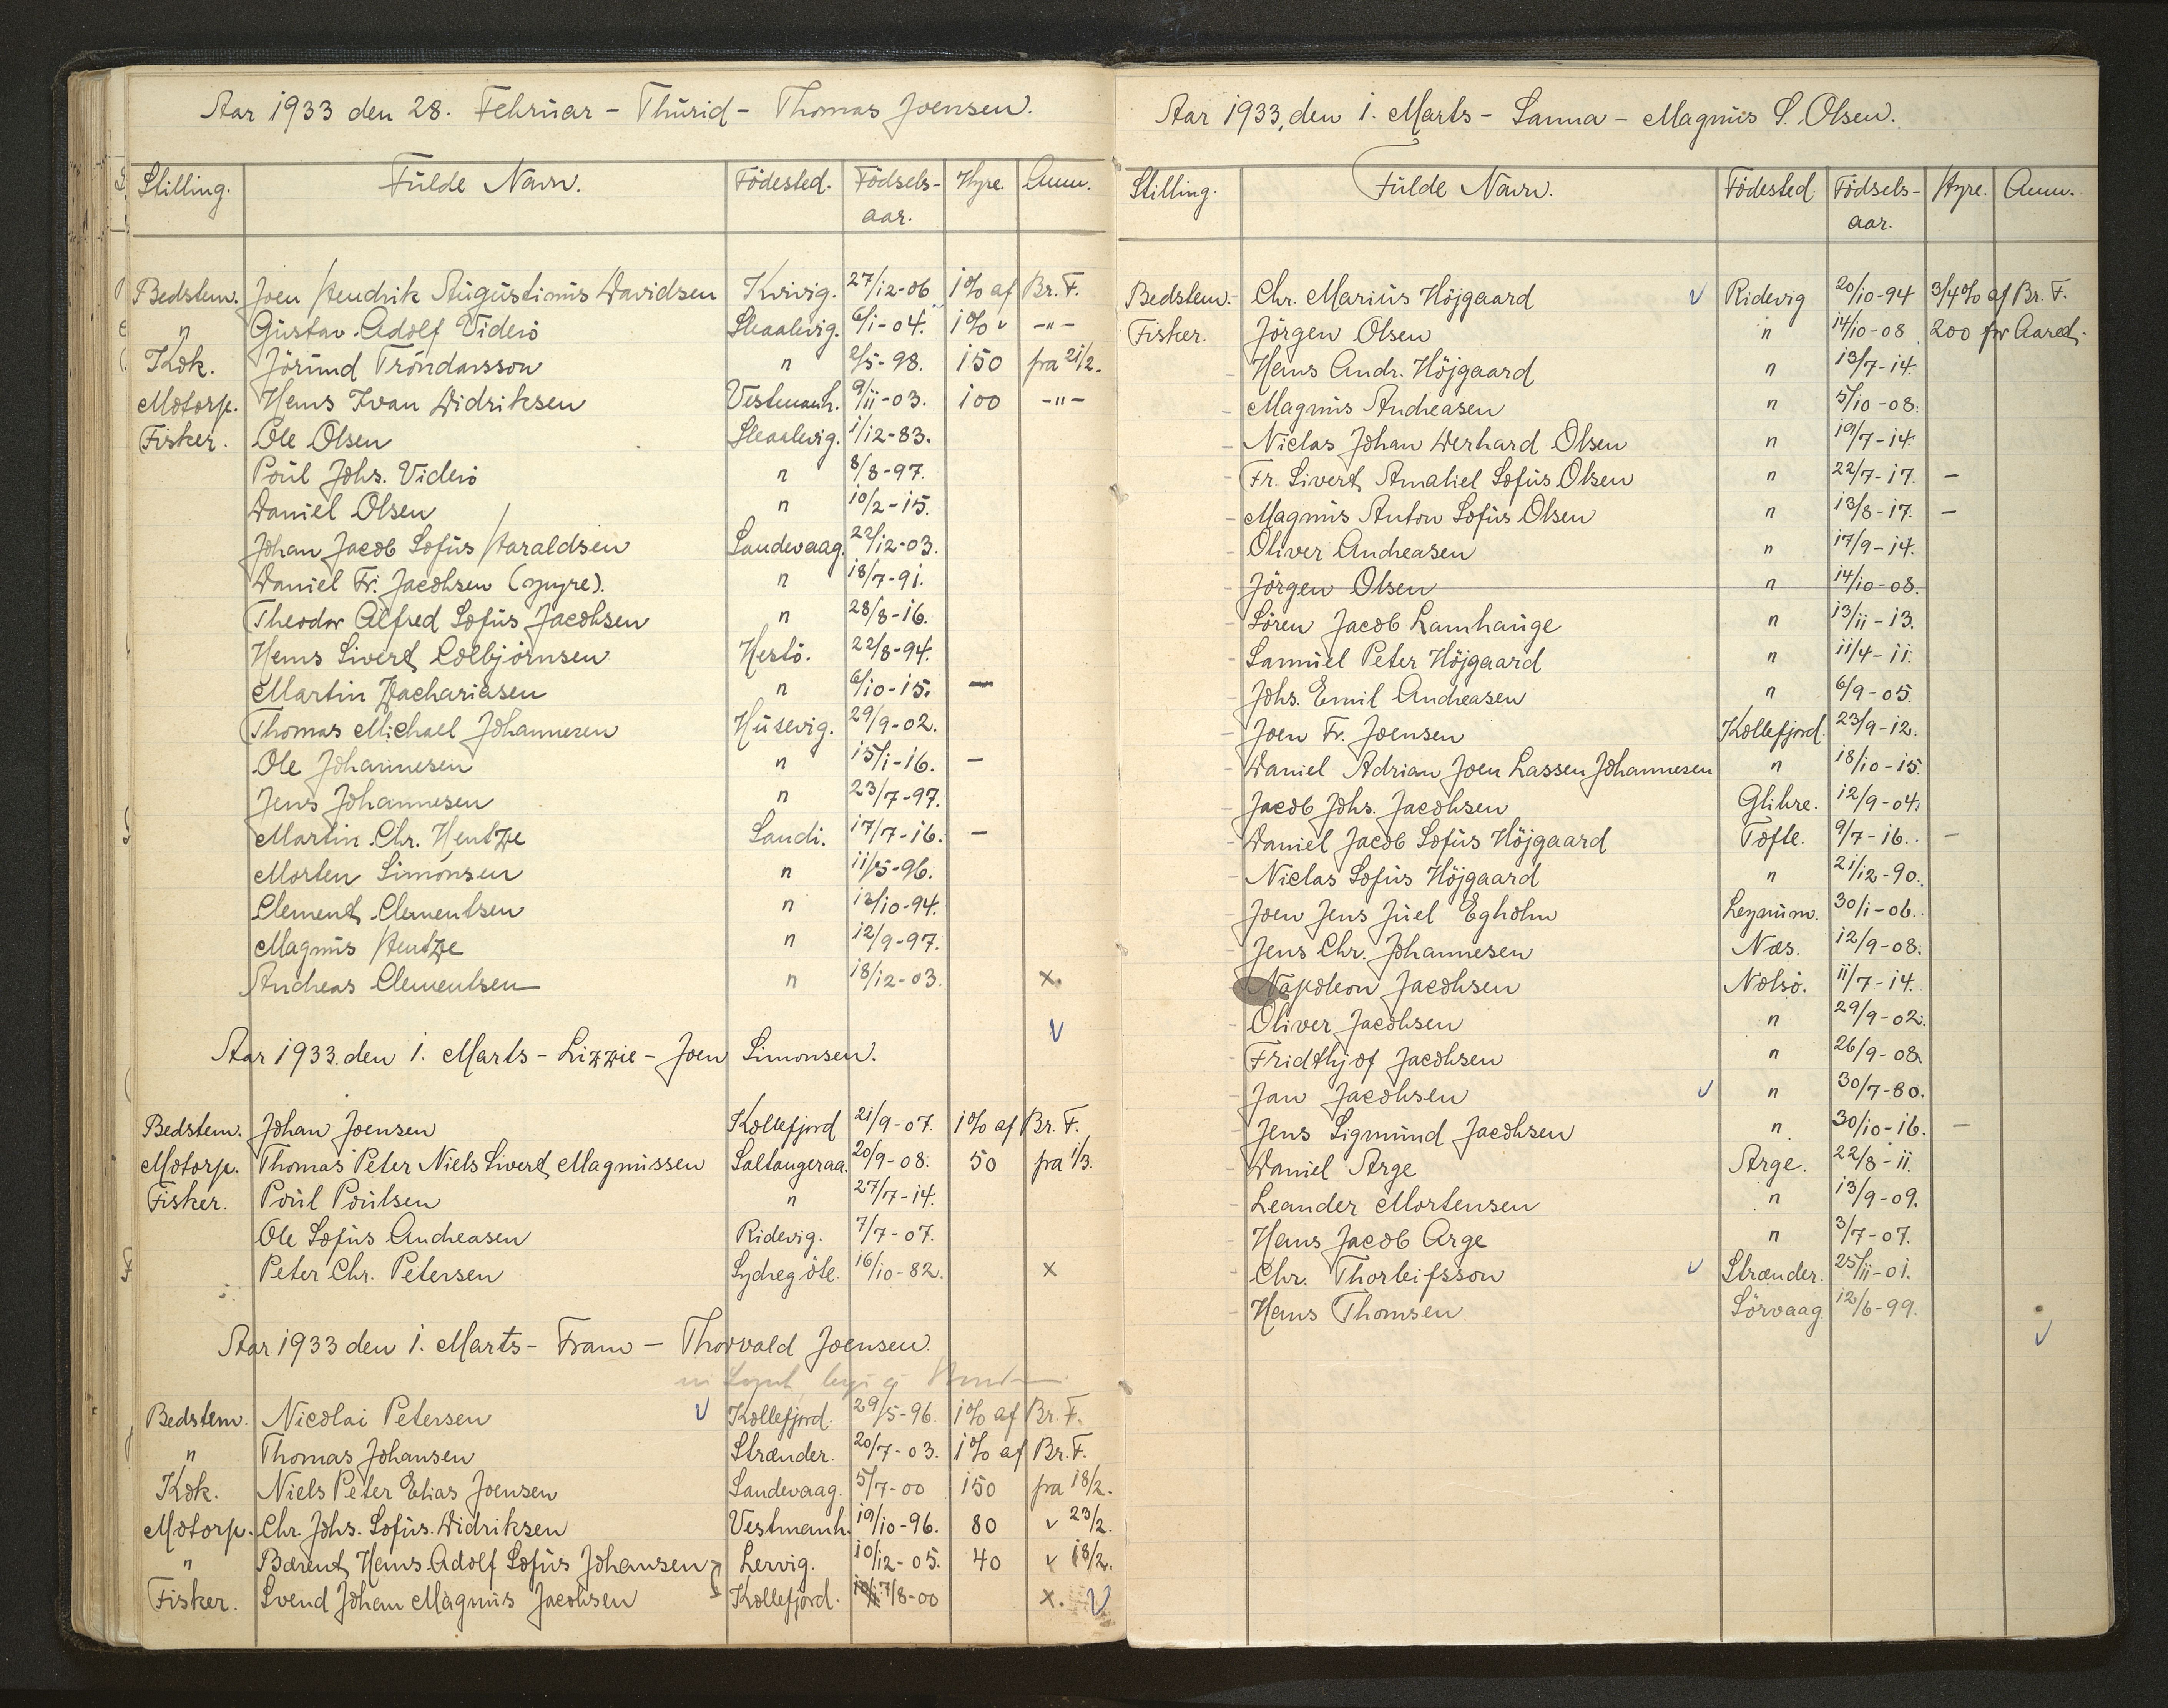 Aar 1933 den 28. Februar - Thurid - Thomas Joensen.
Stilling. Fulde Navn. Födested. Födsels-aar. Hyre. Anm.
Bedstem. Joen Hendrik Augustinus Davidsen Kvivig. 27/12-06 1% af Br. F.
" Gustav Adolf Viderö Skaalevig. 6/1-04. 1% " -"-
Kok. Jörund Tróndarsson " 2/5-98. 150 fra 21/2.
Motorp. Hans Ivan Didriksen Vestmanh. 9/11-03. 100 -"-
Fisker. Ole Olsen Skaalevig. 1/12-83.
Poul Johs. Viderö " 8/8-97.
Daniel Olsen " 10/2-15.
Johan Jacob Sofus Haraldsen Sandevaag. 22/12-03.
Daniel Fr. Jacobsen (yngre). " 18/7-91.
Theodor Alfred Sofus Jacobsen " 28/8-16.
Hans Sivert Colbjörnsen Hestö. 22/8-94.
Martin Zachariasen " 6/10-15. -
Thomas Michael Johannesen Husevig. 29/9-02.
Ole Johannesen " 15/1-16. -
Jens Johannesen " 23/7-97.
Martin Chr. Hentze Sandi. 17/7-16. -
Morten Simonsen " 11/5-96.
Clement Clementsen " 13/10-94.
Magnus Hentze " 12/9-97.
Andreas Clementsen " 18/12-03. x.
Aar 1933. den 1. Marts - Lizzie - Joen Simonsen.
Bedstem. Johan Joensen Kollefjord 21/9-07. 1% af Br. F.
Motorp. Thomas Peter Niels Sivert Magnussen Saltangeraa. 20/9-08. 50 fra 1/3.
Fisker. Poul Poulsen " 27/7-14.
Ole Sofus Andreasen Ridevig. 7/7-07.
Peter Chr. Petersen Sydregöte. 16/10-82. x
Aar 1933 den 1. Marts - Fram - Thorvald Joensen.
Bedstem. Nicolai Petersen Kollefjord. 29/5-96. 1% af Br. F.
" Thomas Johansen Strænder. 20/7-03. 1% af Br. F.
Kok. Niels Peter Elias Joensen Sandevaag. 5/7-00 150 fra 18/2.
Motorp. Chr. Johs. Sofus Didriksen Vestmanh. 19/10-96. 80 " 23/2.
" Bærent Hans Adolf Sofus Johansen Lervig. 10/12-05. 40 " 18/2.
Fisker. Svend Johan Magnus Jacobsen Kollefjord. 17/8-00 x.
Aar 1933, den 1. Marts - Sanna - Magnus S. Olsen.
Stilling. Fulde Navn. Födested Födsels-aar. Hyre. Anm.
Bedstem. - Chr. Marius Höjgaard Ridevig 20/10-94 3/4% af Br. F.
Fisker. Jörgen Olsen " 14/10-08 200 for Aaret.
Hans Andr. Höjgaard " 13/7-14.
- Magnus Andreasen " 5/10-08.
- Niclas Johan Derhard Olsen " 19/7-14.
- Fr. Sivert Amaliel Sofus Olsen " 22/7-17. -
- Magnus Anton Sofus Olsen " 13/8-17. -
- Oliver Andreasen " 17/9-14.
Jörgen Olsen " 14/10-08.
- Sören Jacob Lamhauge " 13/11-13.
- Samuel Peter Höjgaard " 11/4-11.
- Johs. Emil Andreasen " 6/9-05.
- Joen Fr. Joensen Kollefjord. 23/9-12.
- Daniel Adrian Joen Lassen Johannesen " 18/10-15.
- Jacob Johs. Jacobsen Glibre. 12/9-04.
- Daniel Jacob Sofus Höjgaard Tofte. 9/7-16. -
- Niclas Sofus Höjgaard " 21/12-90.
- Joen Jens Juel Egholm Leynum. 30/1-06.
- Jens Chr. Johannesen Næs. 12/9-08.
Napoleon Jacobsen Nolsö. 11/7-14.
- Oliver Jacobsen " 29/9-02.
- Fridthjof Jacobsen " 26/9-08.
- Jan Jacobsen " 30/7-80.
- Jens Sigmund Jacobsen " 30/10-16. -
- Daniel Arge Arge. 22/8-11.
- Leander Mortensen " 13/9-09.
- Hans Jacob Arge " 3/7-07.
- Chr. Thorleifsson Strænder. 25/11-01.
- Hans Thomsen Sörvaag. 12/6-99.